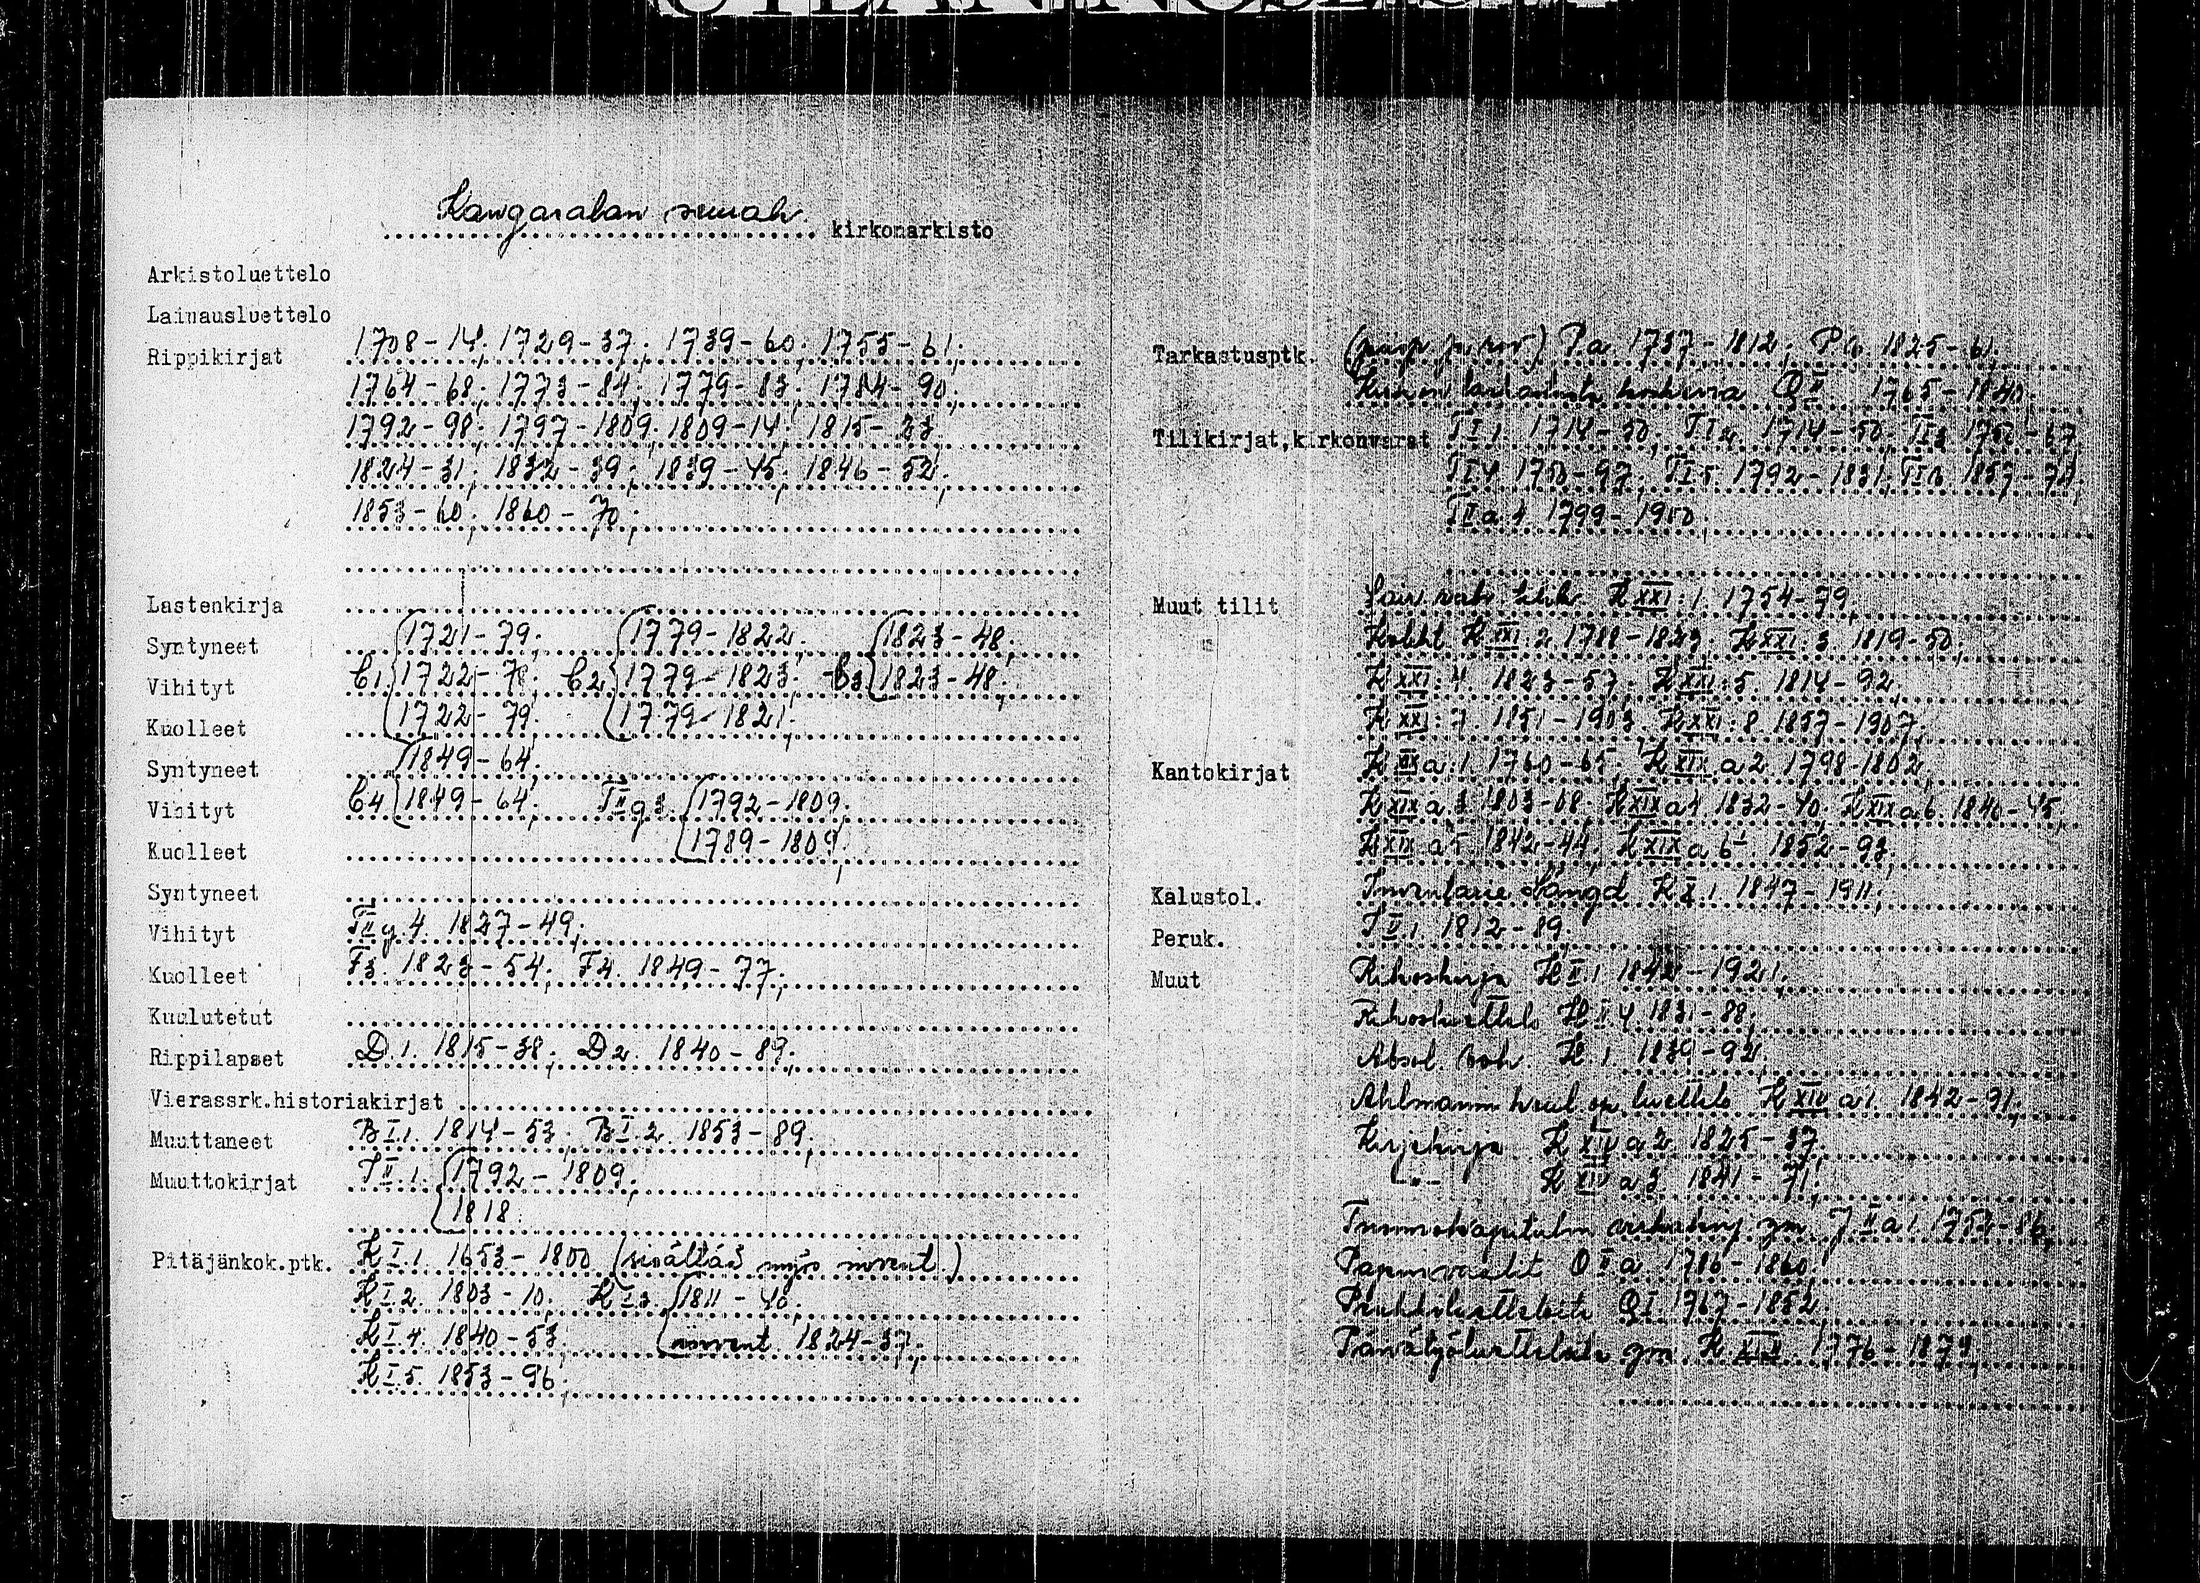 Kangasalan seurak. kirkonarkisto
Arkistoluettelo
Lainausluettelo
Rippikirjat 1708-14; 1729-37; 1739-60; 1755-61;
1764-68; 1773-84; 1779-83; 1784-90;
1792-98; 1797-1809; 1809-14; 1815-23;
1824-31; 1832-39; 1839-45; 1846-52;
1853-60; 1860-70;
Lastenkirja
Syntyneet 1721-79; 1779-1822; 1823-48;
Vihityt C1. 1722-78; C2 1779-1823; C3 1823-48;
Kuolleet 1722-79; 1779-1821;
Syntyneet 1849-64;
Vihityt C4 1849-64; TII g 3. 1792-1809;
Kuolleet 1789-1809;
Syntyneet
Vihityt TII g. 4. 1827-49;
Kuolleet F3. 1823-54; F4. 1849-77;
Kuulutetut
Rippilapset D.1. 1815-38; D2. 1840-89;
Vierassrk.historiakirjat
Muuttaneet BI.1. 1814-53; BI.2. 1853-89;
Muuttokirjat II.1. 1792-1809;
1818.
Pitäjänkok.ptk. KI.1. 1653-1800 (sisältää myös invent.)
KI.2. 1803-10; KI.3. 1811-40;
KI.4. 1840-53; invent. 1824-37;
KI.5. 1853-96;
Tarkastusptk. (piisp. ja rov.) P.a. 1737-1812; 1825-61;
QII 1765-1840;
Tilikirjat,kirkonvarat TI1. 1714-50; TI2. 1714-50; TI3 1750-67
TI4 1750-97; TI5 1792-1831; TI6 1857-74;
TIIa 1. 1799-1900;
Muut tilit KXXI:1 1754-79;
KXXI:2 1788-1823; KXXI:3. 1819-50;
KXXI:4. 1823-57; KXXI:5. 1814-92;
KXXI:7. 1851-1903; KXXI:8 1857-1907;
Kantokirjat KXIXa:1. 1760-65; KXIXa2 1798-1802;
KXIXa3 1803-08; KXIXa4 1832-40; KXIXa6. 1840-45;
KXIXa5 1842-44; KXIXa6 1852-93;
Kalustol. Inventarie Längd KX.1. 1847-1911;
Peruk. 1812-89.
Muut Rikoskirja HII.1 1842-1921;
Rikosluettelo HII.4 1831-88;
Absol. 1839-92;
Ahlmannin koul. op. luettelo KXIVa1. 1842-91;
Kirjekirja KXIVa2 1825-37;
-"- KXIVa3 1841-71;
Tuomiokapitulin JIIa1. 1752-86;
Papinvaalit OIIa 1786-1860;
QI. 1767-1852;
Päivätyöluetteloita ym. 1776-1879;